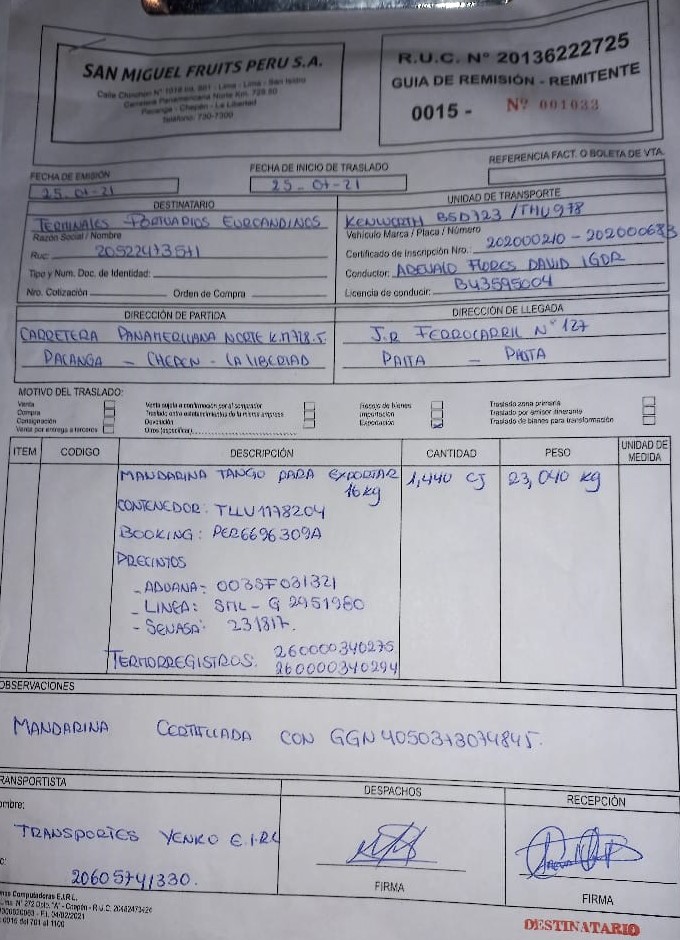 SAN MIGUEL FRUITS PERU S.A.
Carretera Panamericana Norte Km. 729.50
Pacanga - Chepén - La Libertad
Teléfono: 730-7300
R.U.C. Nº 20136222725
GUIA DE REMISIÓN - REMITENTE
0015 - Nº 001033
FECHA DE EMISIÓN
25-01-21
FECHA DE INICIO DE TRASLADO
25-01-21
REFERENCIA FACT. O BOLETA DE VTA.
DESTINATARIO
TERMINALES PORTUARIOS EUROANDINOS
Razón Social / Nombre
Ruc: 20522473571
Tipo y Num. Doc. de Identidad:
Nro. Cotización Orden de Compra
UNIDAD DE TRANSPORTE
KENWORTH B5D723 / THU978
Vehículo Marca / Placa / Número
Certificado de Inscripción Nro.: 202000210 - 20200068B
Conductor: AREVALO FLORES DAVID IGOR
Licencia de conducir: B43595004
DIRECCIÓN DE PARTIDA
CARRETERA PANAMERICANA NORTE K.M718.5
PACANGA - CHEPEN - LA LIBERTAD
DIRECCIÓN DE LLEGADA
J.R FERROCARRIL Nº 127
PAITA - PAITA
MOTIVO DEL TRASLADO:
Venta
Compra
Consignación
Venta por entrega a terceros
Venta sujeta a confirmación por el comprador
Traslado entre establecimientos de la misma empresa
Devolución
Otros (especificar)
Recojo de bienes
Importación
Exportación
Traslado zona primaria
Traslado por emisor itinerante
Traslado de bienes para transformación
ITEM CODIGO DESCRIPCIÓN CANTIDAD PESO UNIDAD DE MEDIDA
MANDARINA TANGO PARA EXPORTAR 1,440 CJ 23,040 kg
16kg
CONTENEDOR: TLLU1178204
BOOKING: PER6696309A
PRECINTOS
- ADUANA: 003SF031321
- LINEA: SML - G 2951980
- SENASA: 231817.
TERMORREGISTROS: 260000340275
260000340294
OBSERVACIONES
MANDARINA CERTIFICADA CON GGN 4050373074845.
TRANSPORTISTA
ombre:
TRANSPORTES YENKO E.I.RL
c:
20605741330.
DESPACHOS
FIRMA
RECEPCIÓN
FIRMA
DESTINATARIO